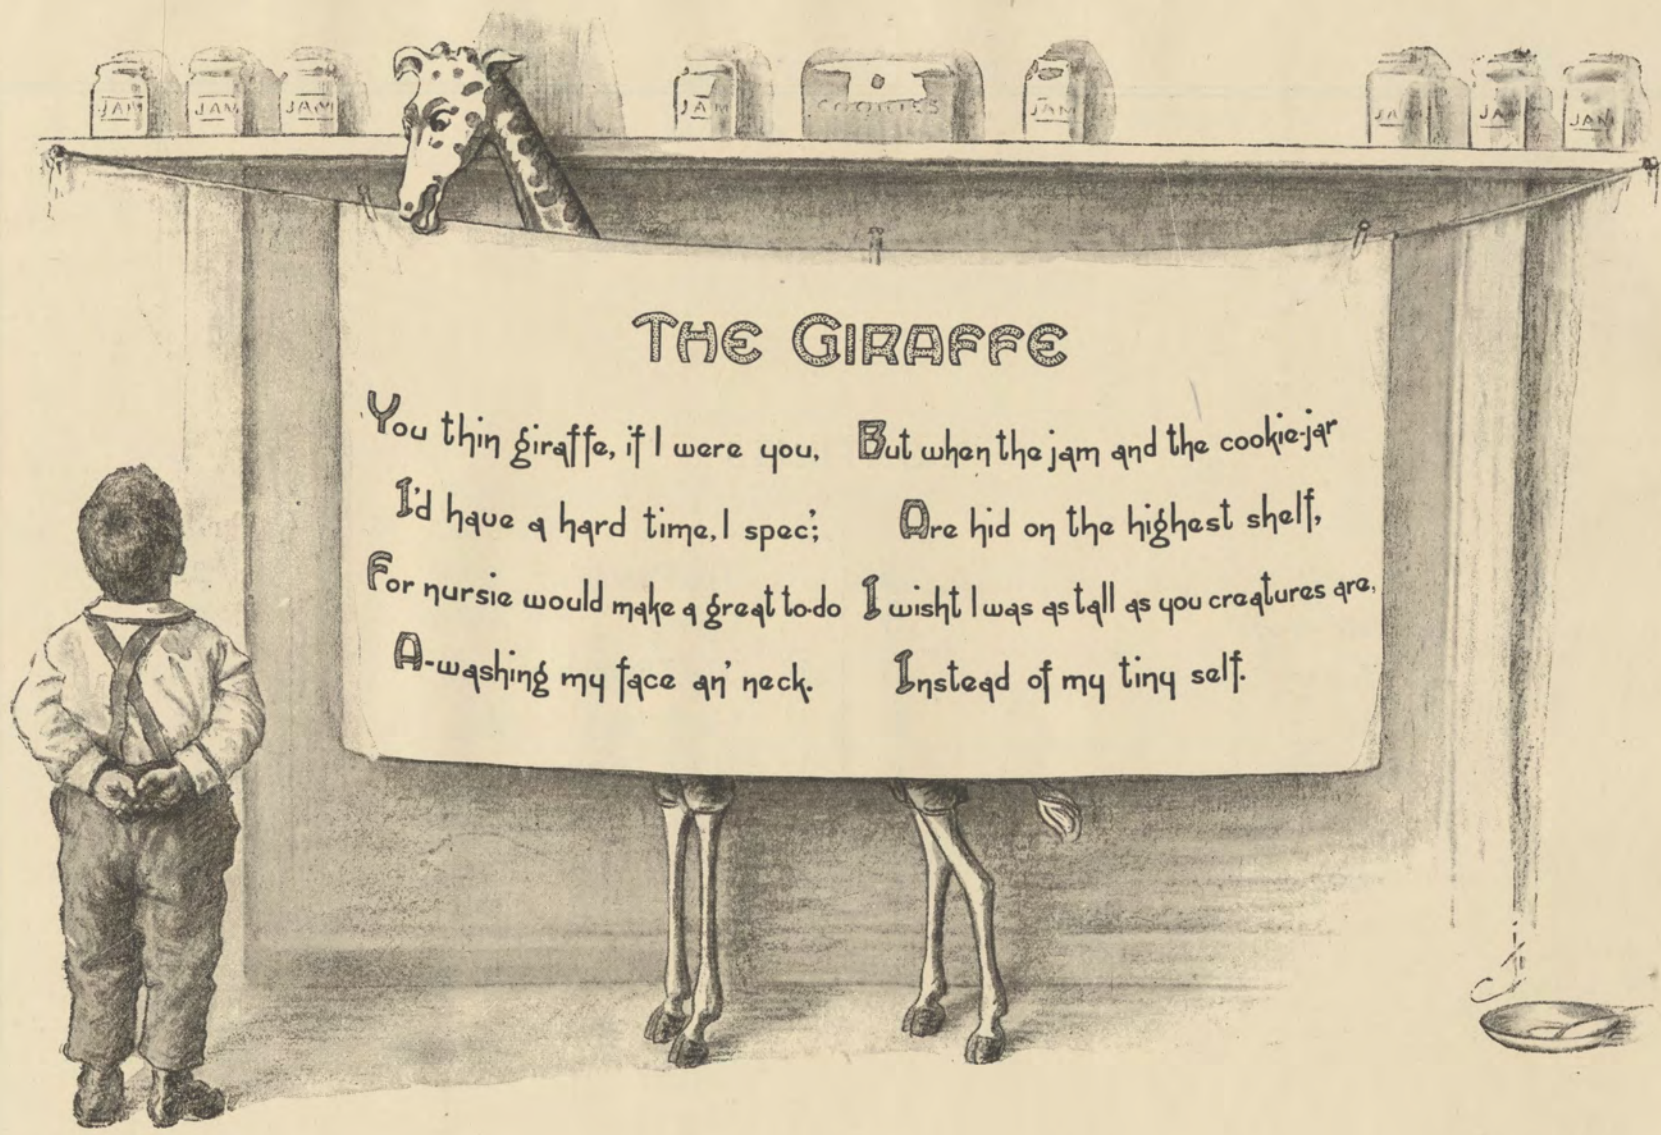 JAM
JAM
JAM
JAM
COOKIES
JAM
JAM
JAM
JAM
THE GIRAFFE
You thin giraffe, if I were you,
I'd have a hard time, I spec';
For nursie would make a great to-do
A-washing my face an' neck.
But when the jam and the cookie-jar
Are hid on the highest shelf,
I wisht I was as tall as you creatures are,
Instead of my tiny self.